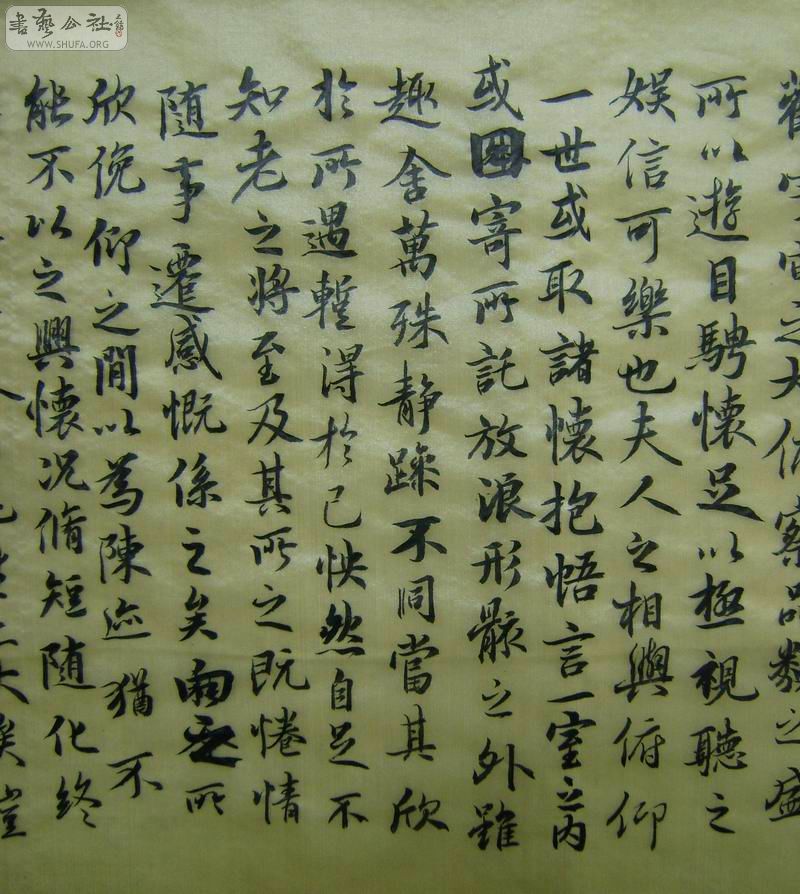 書藝公社
WWW.SHUFA.ORG
觀宇宙之大俯察品類之盛
所以遊目騁懷足以極視聽之
娛信可樂也夫人之相與俯仰
一世或取諸懷抱悟言一室之內
或因寄所託放浪形骸之外雖
趣舍萬殊静躁不同當其欣
於所遇蹔得於己怏然自足不
知老之將至及其所之既惓情
隨事遷感慨係之矣向之所
欣俛仰之閒以為陳迹猶不
能不以之興懷況脩短隨化終
大矣豈